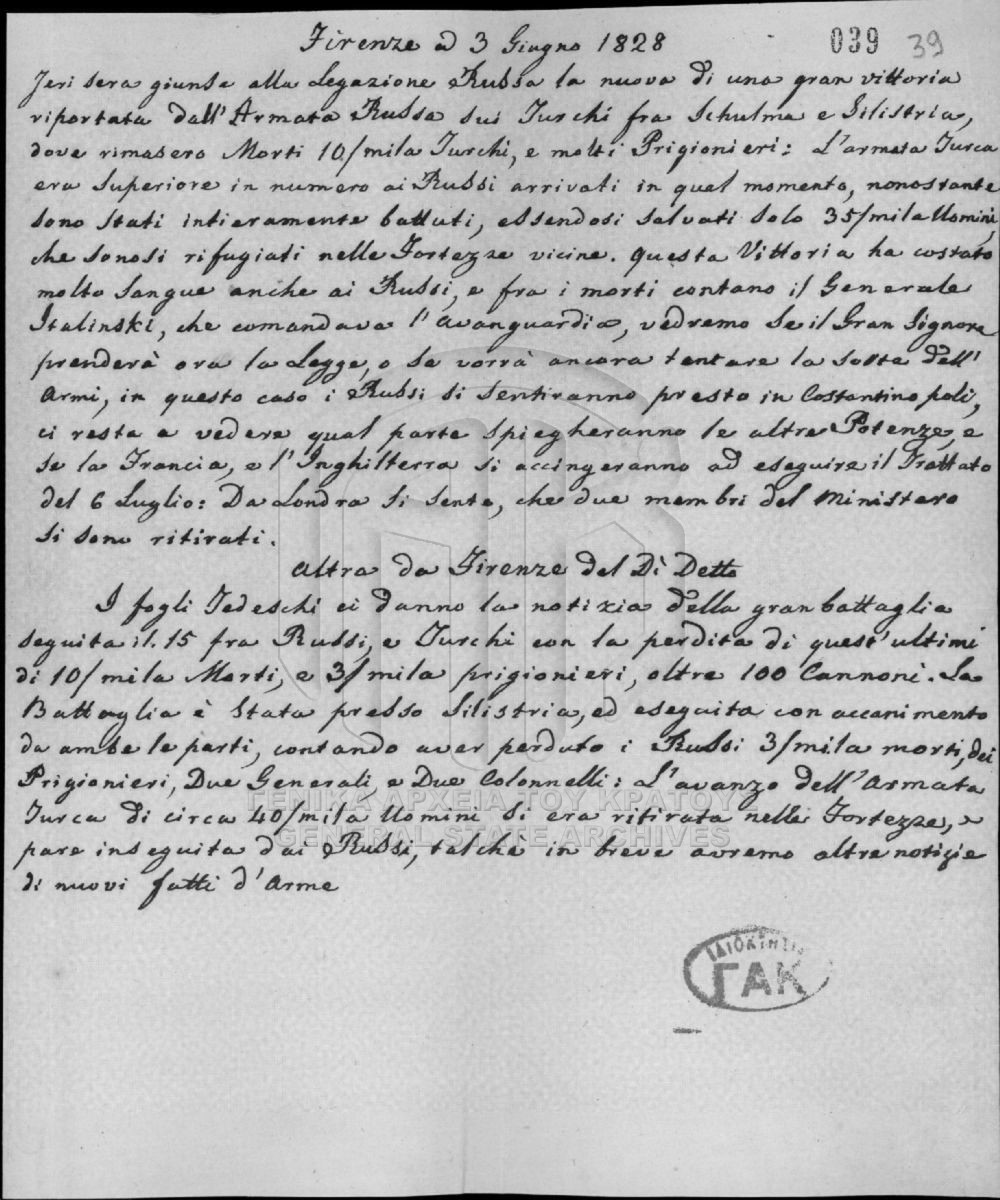 Firenze a 3 Giugno 1828
039 39
Jeri sera giunse alla Legazione Russa la nuova di una gran vittoria
riportata dall'Armata Russa sui Turchi fra Schulma e Silistria,
dove rimasero Morti 10/mila Turchi, e molti Prigionieri: L'armata Turca
era superiore in numero ai Russi arrivati in quel momento, nonostante
sono stati intieramente battuti, essendosi salvati solo 35/mila Uomini,
che sonosi rifugiati nelle Fortezze vicine. Questa Vittoria ha costato
molto sangue anche ai Russi, e fra i morti contano il Generale
Italinski, che comandava l'avanguardia, vedremo se il Gran Signore
prenderà ora la Legge, o se vorrà ancora tentare la sorte dell'
Armi, in questo caso i Russi si sentiranno presto in Costantinopoli,
ci resta a vedere qual parte spiegheranno le altre Potenze, e
se la Francia, e l'Inghilterra si accingeranno ad eseguire il Trattato
del 6 Luglio: Da Londra si sente, che due membri del Ministero
si sono ritirati.
Altra da Firenze del Dì Detto
I fogli Tedeschi ci danno la notizia della gran battaglia
seguita il. 15 fra Russi, e Turchi con la perdita di quest'ultimi
di 10/mila Morti, e 3/mila prigionieri, oltre 100 Cannoni. La
Battaglia è stata presso Silistria, ed eseguita con accanimento
da ambe le parti, contando aver perduto i Russi 3/mila morti, dei
Prigionieri, Due Generali, e Due Colonnelli: L'avanzo dell'Armata
Turca di circa 40/mila Uomini si era ritirata nelle Fortezze, e
pare inseguita dai Russi, talche in breve avremo altre notizie
di nuovi fatti d'Arme
ΓΕΝΙΚΑ ΑΡΧΕΙΑ ΤΟΥ ΚΡΑΤΟΥΣ
GENERAL STATE ARCHIVES
ΙΔΙΟΚΤΗΣΙΑ
ΓΑΚ